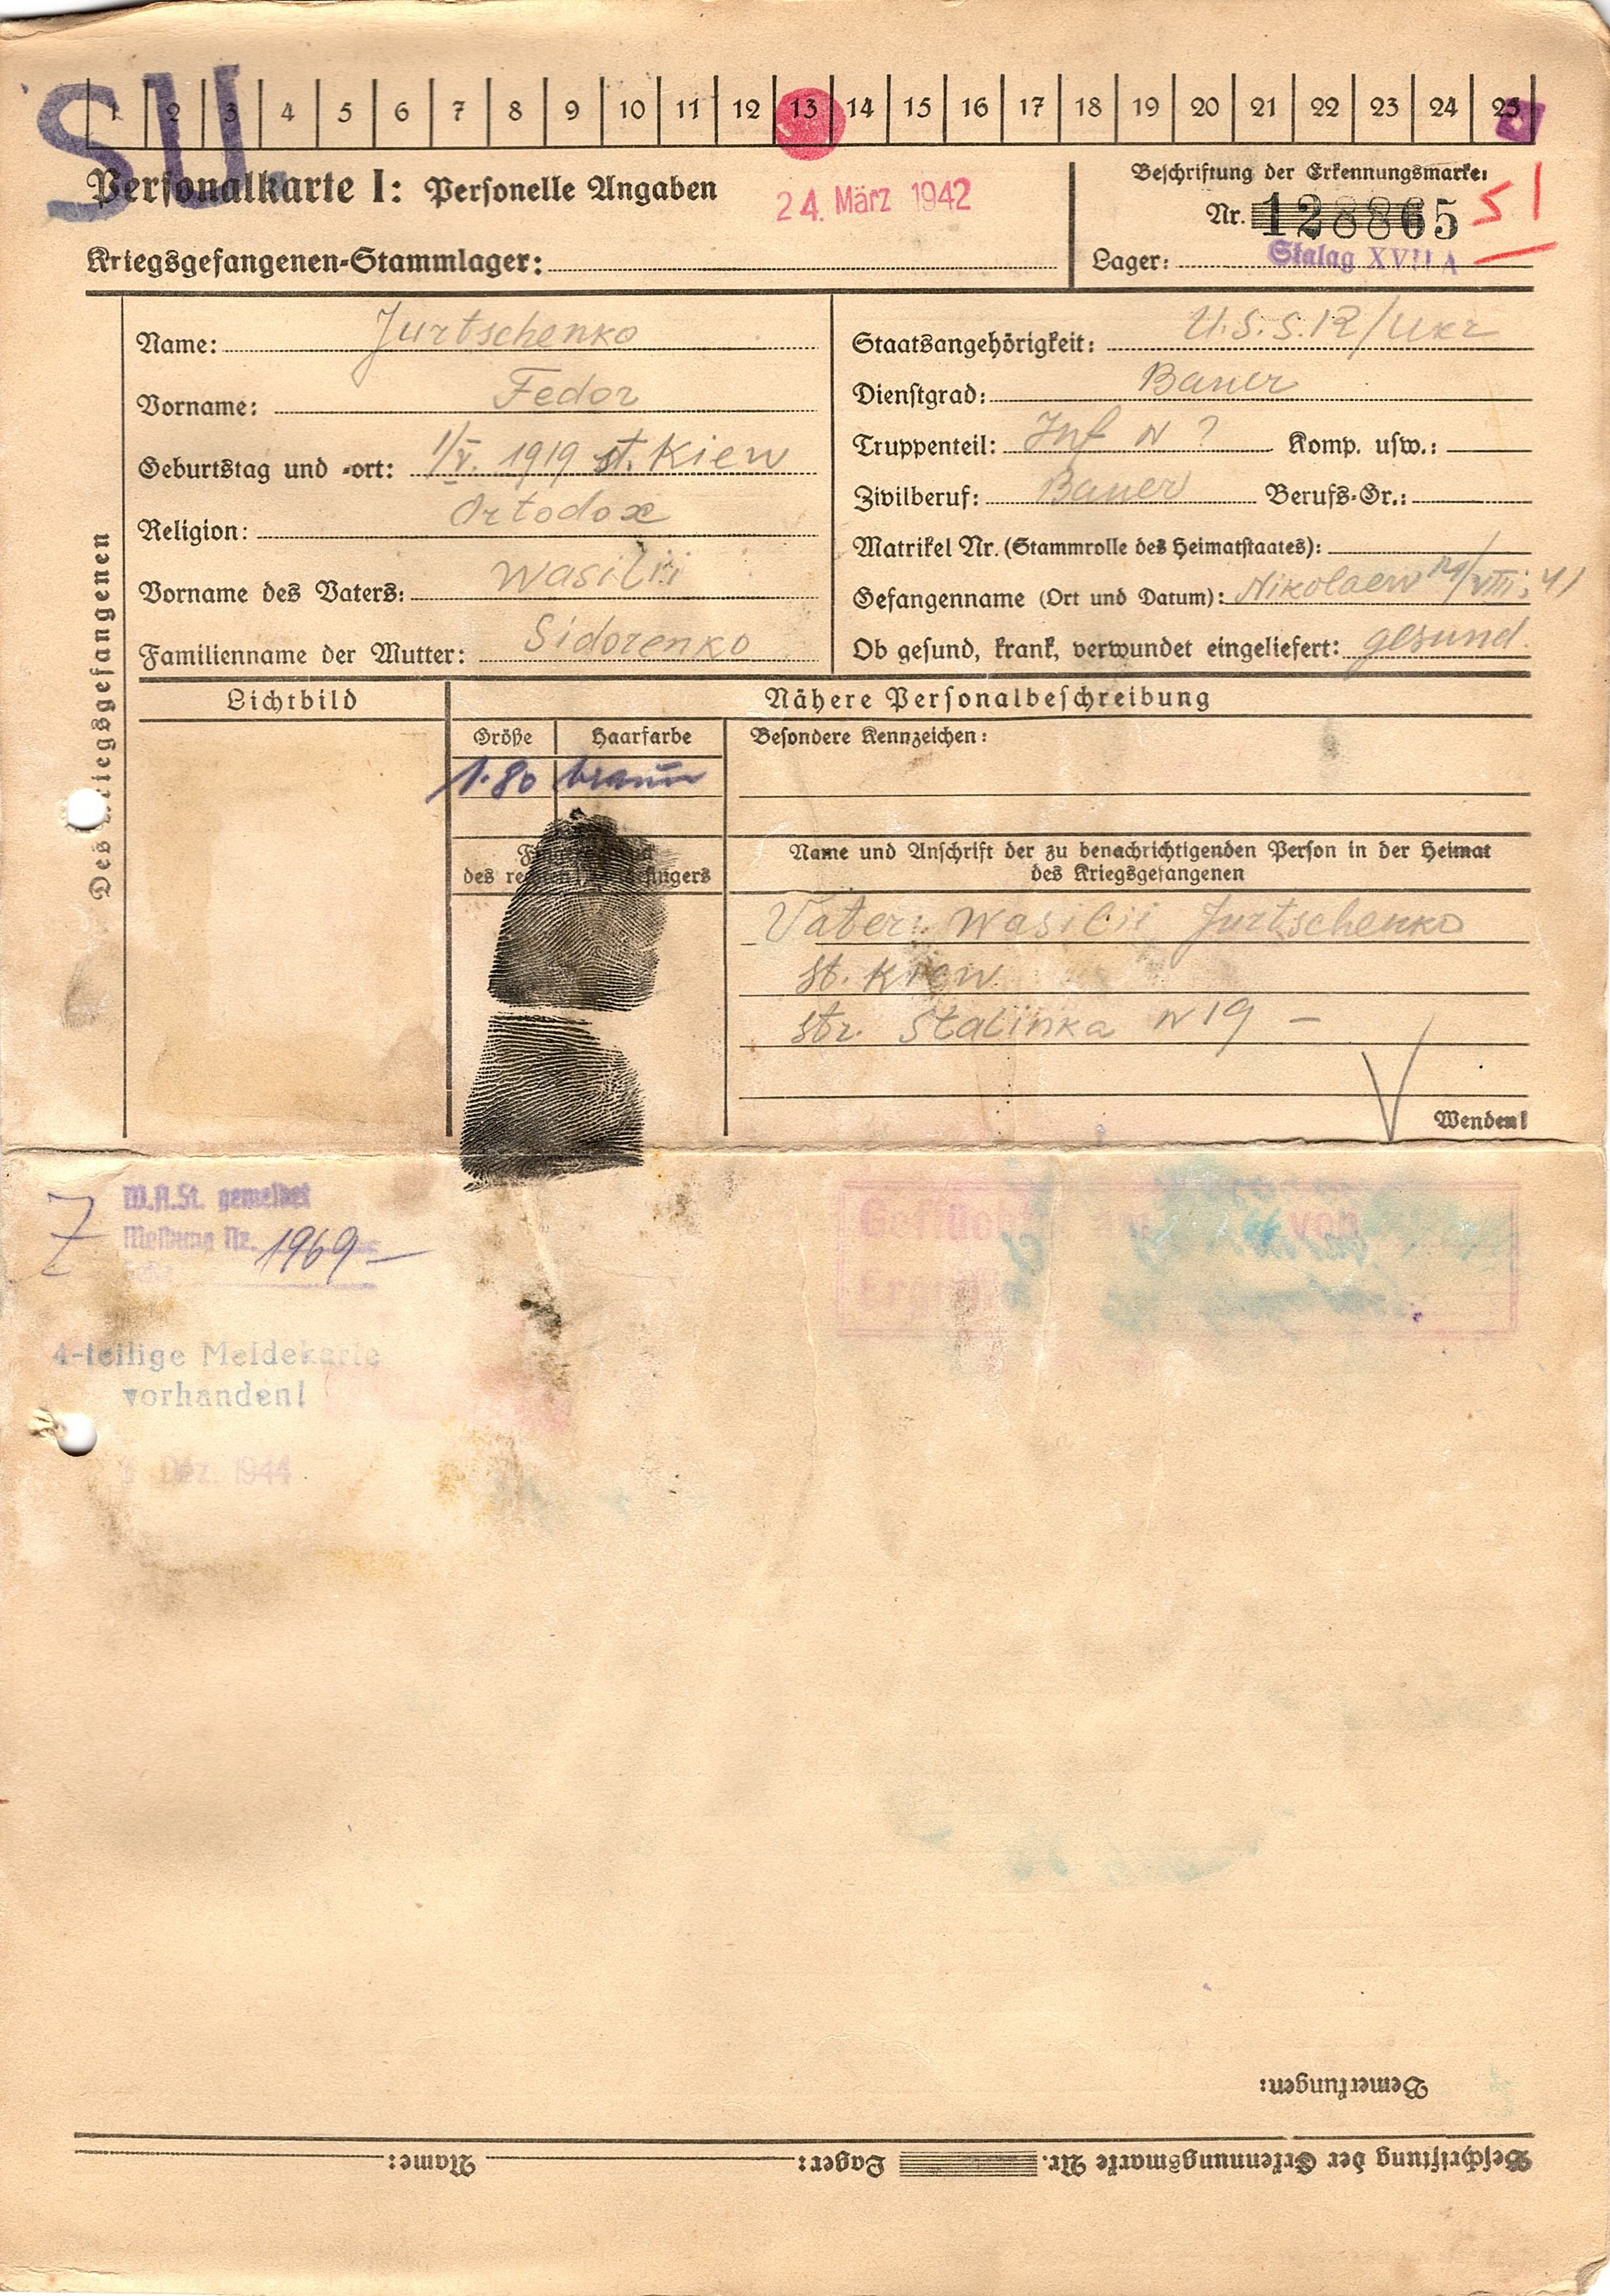 SU
1 2 3 4 5 6 7 8 9 10 11 12 13 14 15 16 17 18 19 20 21 22 23 24 25
Personalkarte I: Personelle Angaben
24. März 1942
Kriegsgefangenen-Stammlager:
Beschriftung der Erkennungsmarke:
Nr. 128865
Lager: Stalag XVII A
Des Kriegsgefangenen
Name: Jurtschenko
Vorname: Fedor
Geburtstag und -ort: 1/V. 1919 st. Kiew
Religion: Ortodox
Vorname des Vaters: Wasilii
Familienname der Mutter: Sidorenko
Staatsangehörigkeit: U.S.S.R/Ukr
Dienstgrad: Bauer
Truppenteil: Inf N ? Komp. usw.:
Zivilberuf: Bauer Berufs-Gr.:
Matrikel Nr. (Stammrolle des Heimatstaates):
Gefangenname (Ort und Datum): Nikolaew /VIII. 41
Ob gesund, krank, verwundet eingeliefert: gesund.
Lichtbild
Nähere Personalbeschreibung
Größe Haarfarbe
1.80 braun
des rechten
Besondere Kennzeichen:
Name und Anschrift der zu benachrichtigenden Person in der Heimat
des Kriegsgefangenen
Vater: Wasilii Jurtschenko
st. Kiew
str. Stalinka N 19 –
Wenden!
W.A.St. gemeldet
Meldung Nr. 1969 –
4-teilige Meldekarte
vorhanden!
Dez. 1944
von
Bemerkungen:
Beschriftung der Erkennungsmarke Nr. Lager: Name: